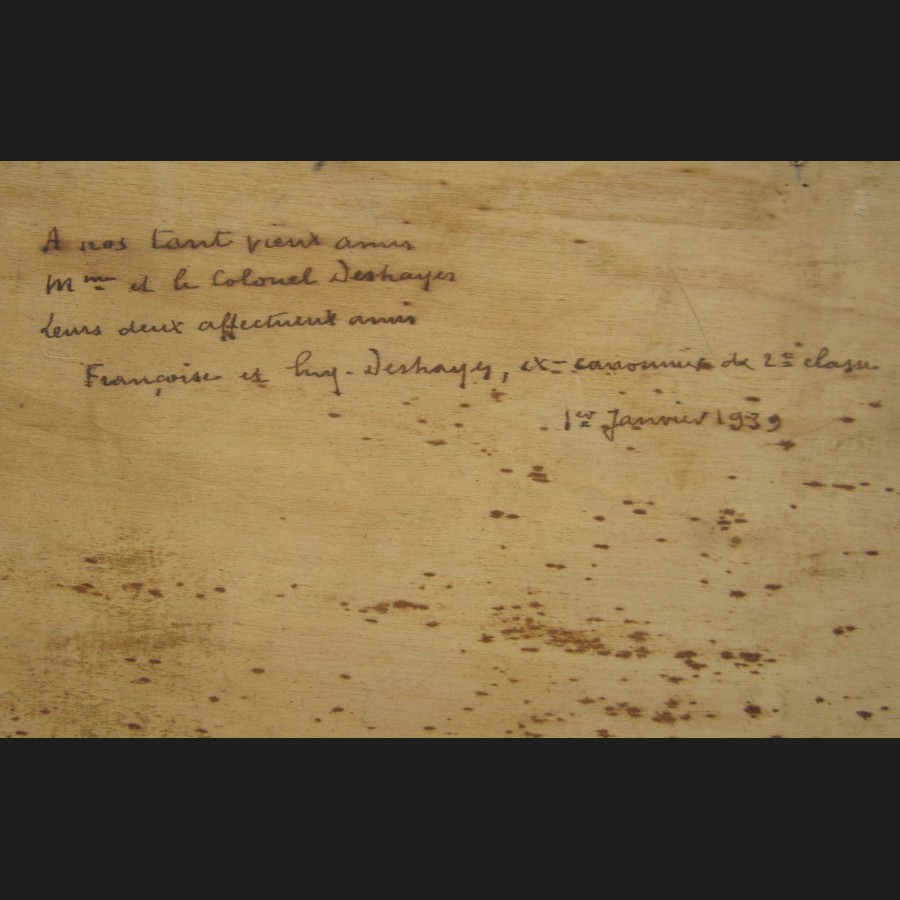 A nos tant vieux amis
Mme et le Colonel Deshayes
Leurs deux affectueux amis
Françoise et Guy-Deshayes, ex-canonnier de 2e classe
1er Janvier 1939